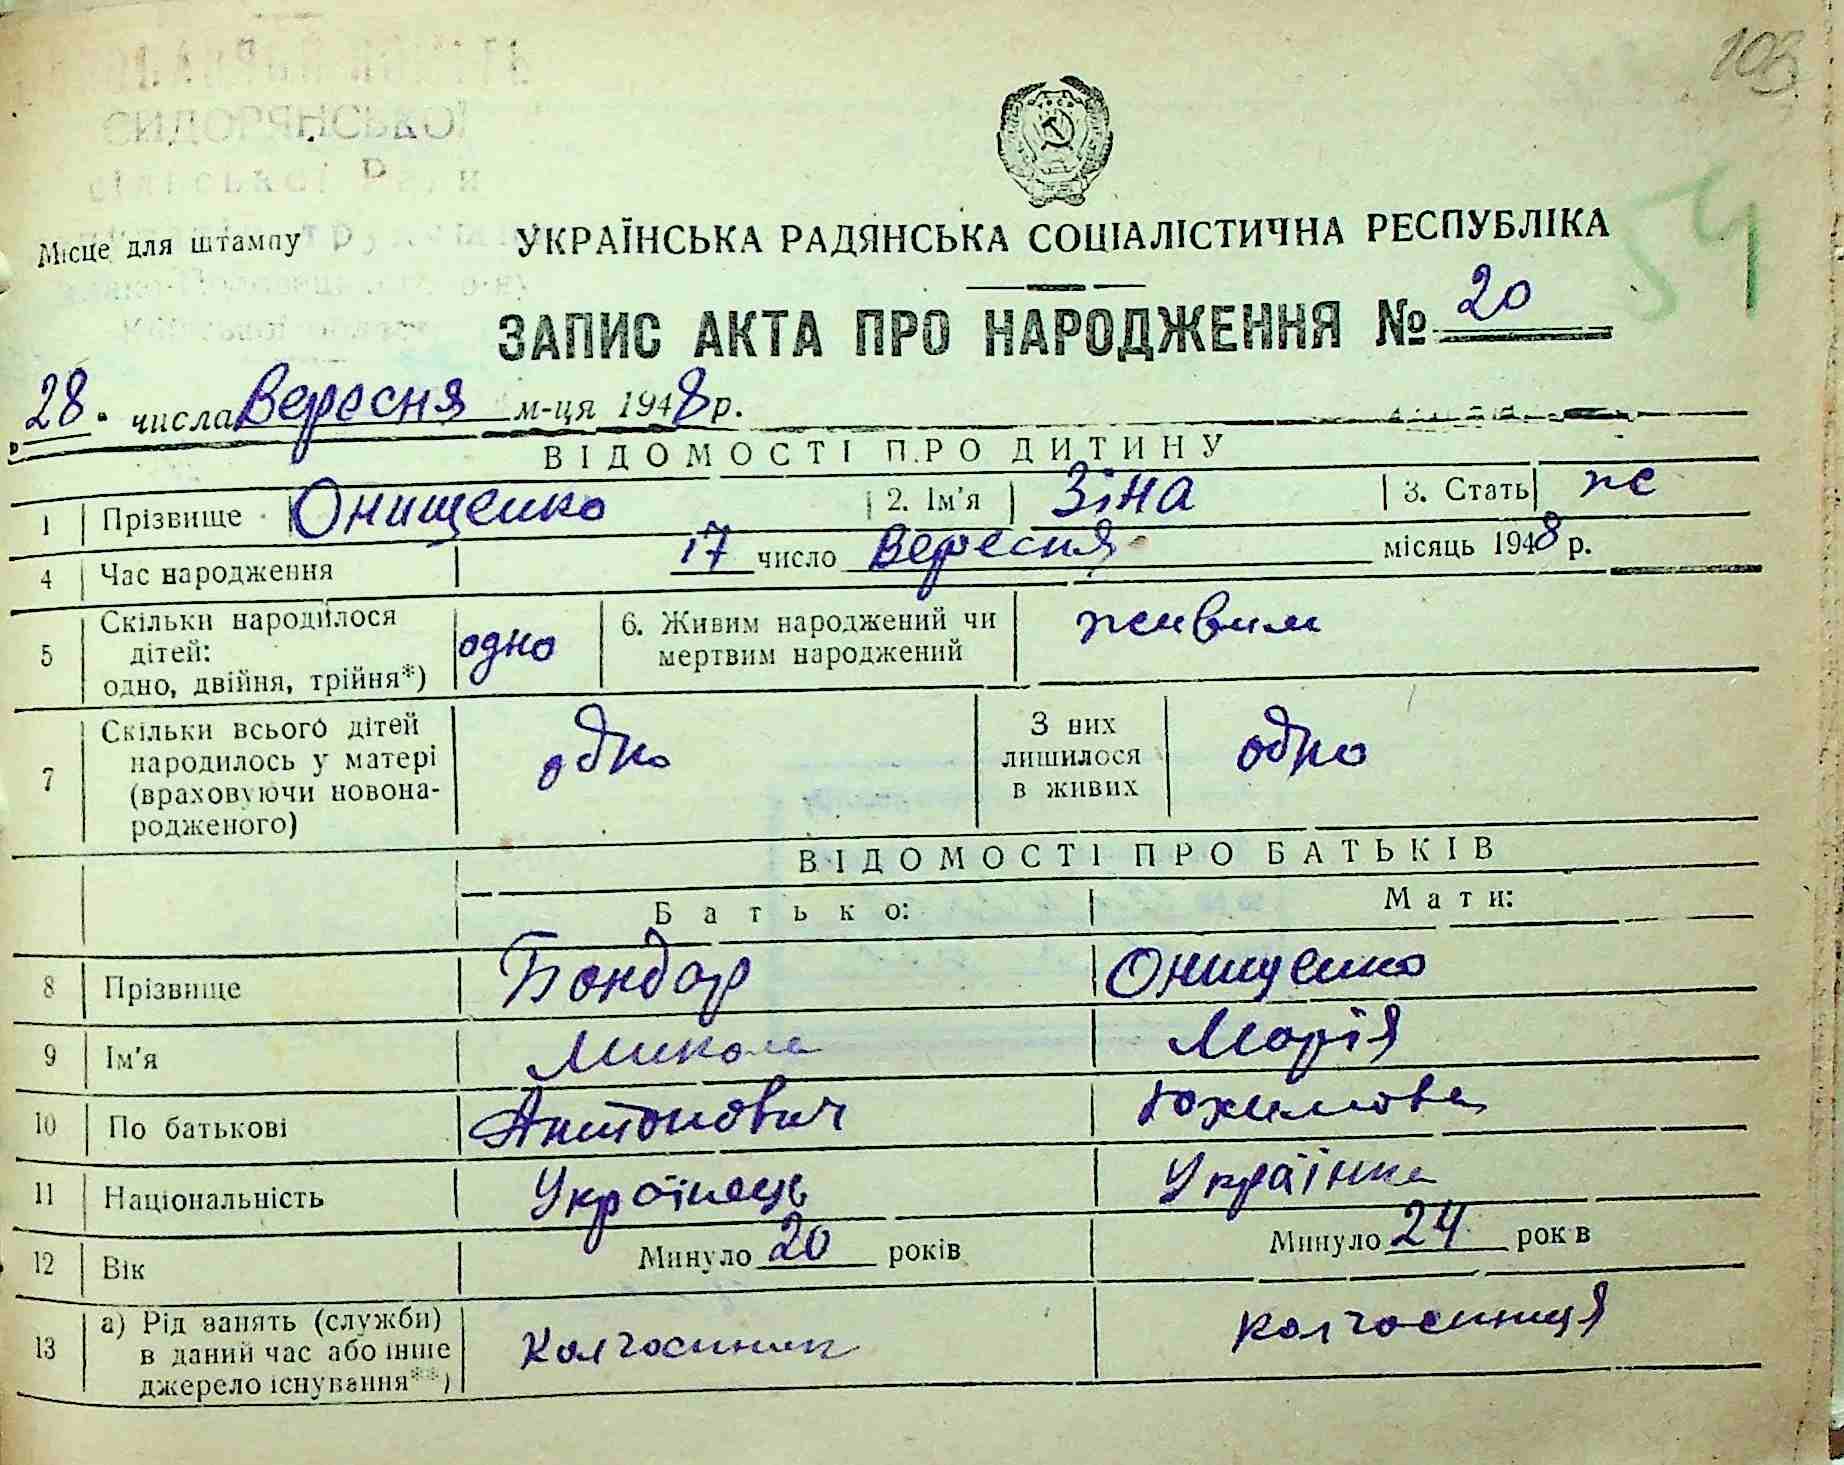 103
СИДОРЯНСЬКОЇ
сільської Ради
Місце для штампу
УКРАЇНСЬКА РАДЯНСЬКА СОЦІАЛІСТИЧНА РЕСПУБЛІКА
54
ЗАПИС АКТА ПРО НАРОДЖЕННЯ № 20
28. числа Вересня м-ця 1948 р.
ВІДОМОСТІ ПРО ДИТИНУ
1 Прізвище Онищенко 2. Ім'я Зіна 3. Стать же
4 Час народження 17 число Вересня місяць 1948 р.
5 Скільки народилося дітей: одно, двійня, трійня*) одно 6. Живим народжений чи мертвим народжений живим
7 Скільки всього дітей народилось у матері (враховуючи новонародженого) одно З них лишилося в живих одно
ВІДОМОСТІ ПРО БАТЬКІВ
Батько: Мати:
8 Прізвище Бондар Онищенко
9 Ім'я Микола Марія
10 По батькові Антонович Юхимова
11 Національність Українець Українка
12 Вік Минуло 20 років Минуло 24 років
13 а) Рід занять (служби) в даний час або інше джерело існування**) Колгоспник колгоспниця